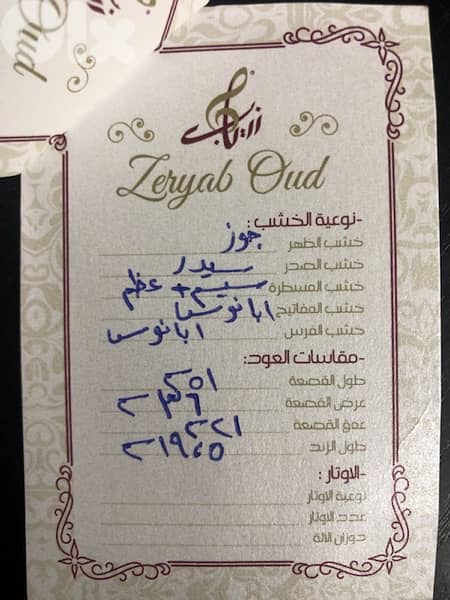 Oud
زرياب
Zeryab Oud
-نوعية الخشب :
خشب الظهر جوز
خشب الصدر سيدر
خشب المسطرة سيسم + عظم
خشب المفاتيح ابانوس
خشب الفرس ابانوس
-مقاسات العود:
طول القصعة ٥١
عرض القصعة ٣٦
عمق القصعة ٢١
طول الزند ١٩,٥
-الاوتار :
نوعية الاوتار
عدد الاوتار
دوزان الالة